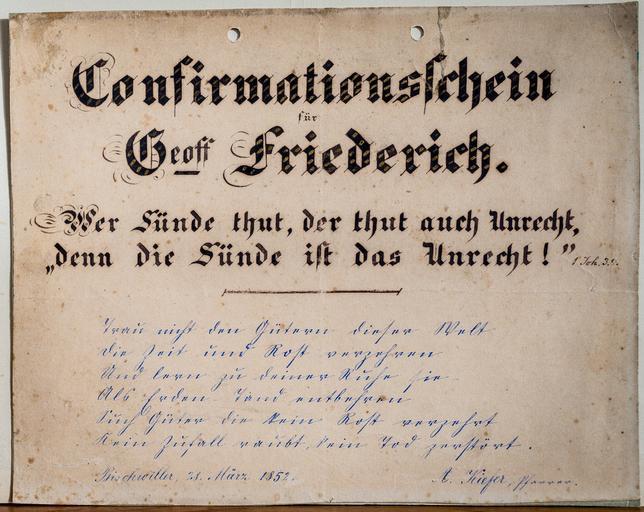 Confirmationsschein
für
Geoff Friederich.
Wer Sünde thut, der thut auch Unrecht,
„denn die Sünde ist das Unrecht!” 1 Joh. 3.
Trau nicht den Gütern dieser Welt
Die Zeit und Rost verzehren
Und lern zu deiner Ruhe sie
Als Erden Tand entbehren
Such Güter die kein Rost verzehrt
Kein Zufall raubt, kein Tod zerstört.
Bischweiller, 28. März 1852.
A. Kiefer, Pfarrer.